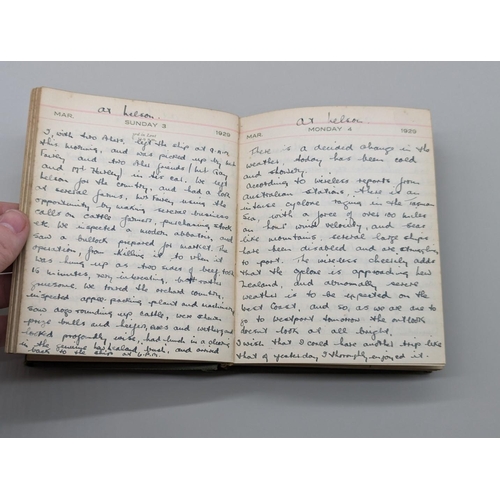 at Nelson.
MAR. SUNDAY 3 1929
I, with two others, left the ship at 9 a.m.
this morning, and was picked up by Mr
Furley and two other friends (Mr Gay
and Mr Hurley) in their car. We left
Nelson for the country, and had a look
at several farms, Mr Furley using the
opportunity by making several business
calls on cattle farmers, purchasing stock
etc. We inspected a modern abbatoir, and
saw a bullock prepared for market. The
operation from killing it to when it
was hung up as two sides of beef took
16 minutes, very interesting, but rather
gruesome. We toured the orchard country,
inspected apple packing plant and machinery,
saw dogs rounding up cattle, were shown
prize bulls and heifers, ewes and wethers and
looked profoundly wise, had lunch in a
in the genuine New Zealand bush, and arrived
back to the ship at 6 P.M.
at Nelson.
MAR. MONDAY 4 1929
There is a decided change in the
weather, today has been cold
and showery.
According to wireless reports from
Australian stations, there is an
intense cyclone raging in the Tasman
Sea, with a force of over 100 miles
an hour wind velocity, and seas
like mountains several large ships
have been disabled and are struggling
to port. The wireless cheerily adds
that the cyclone is approaching New
Zealand, and abnormally severe
weather is to be expected on the
West Coast, and so, as we are to
go to Westport tomorrow the outlook
doesn't look at all bright.
I wish that I could have another trip like
that of yesterday I thoroughly enjoyed it.